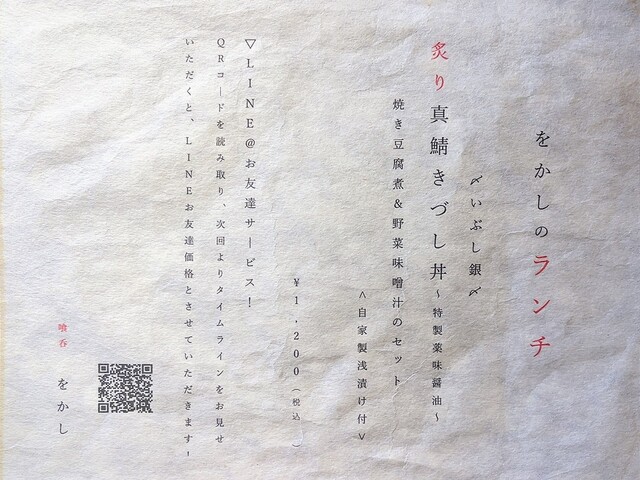 をかしのランチ
〆いぶし銀〆
炙り真鯖きづし丼～特製薬味醤油～
焼き豆腐煮＆野菜味噌汁のセット
＜自家製浅漬け付＞
￥１.２００（税込）
▽ＬＩＮＥ＠お友達サービス！
ＱＲコードを読み取り、次回よりタイムラインをお見せ
いただくと、ＬＩＮＥお友達価格とさせていただきます！
喰呑 をかし